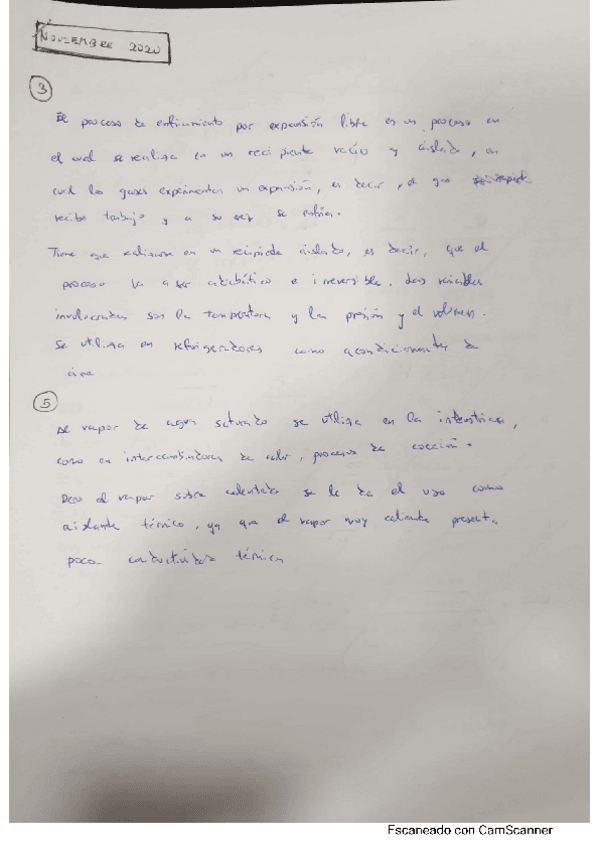 NOVIEMBRE 2020
3
El proceso de enfriamiento por expansión libre es un proceso en
el cual se realiza en un recipiente vacío y aislado, en
cual los gases experimentan un expansión, es decir, el gas
recibe trabajo y a su vez se enfría.
Tiene que realizarse en un recipiente aislado, es decir, que el
proceso va a ser adiabático e irreversible. Las variables
involucradas son la temperatura y la presión y el volumen.
Se utiliza en refrigeradores como acondicionamiento de
aire
5
El vapor de agua saturado se utiliza en la industria,
como en intercambiadores de calor, procesos de cocción.
Pero el vapor sobre calentado se le da el uso como
aislante térmico, ya que el vapor muy caliente presenta
poca conductividad térmica
Escaneado con CamScanner